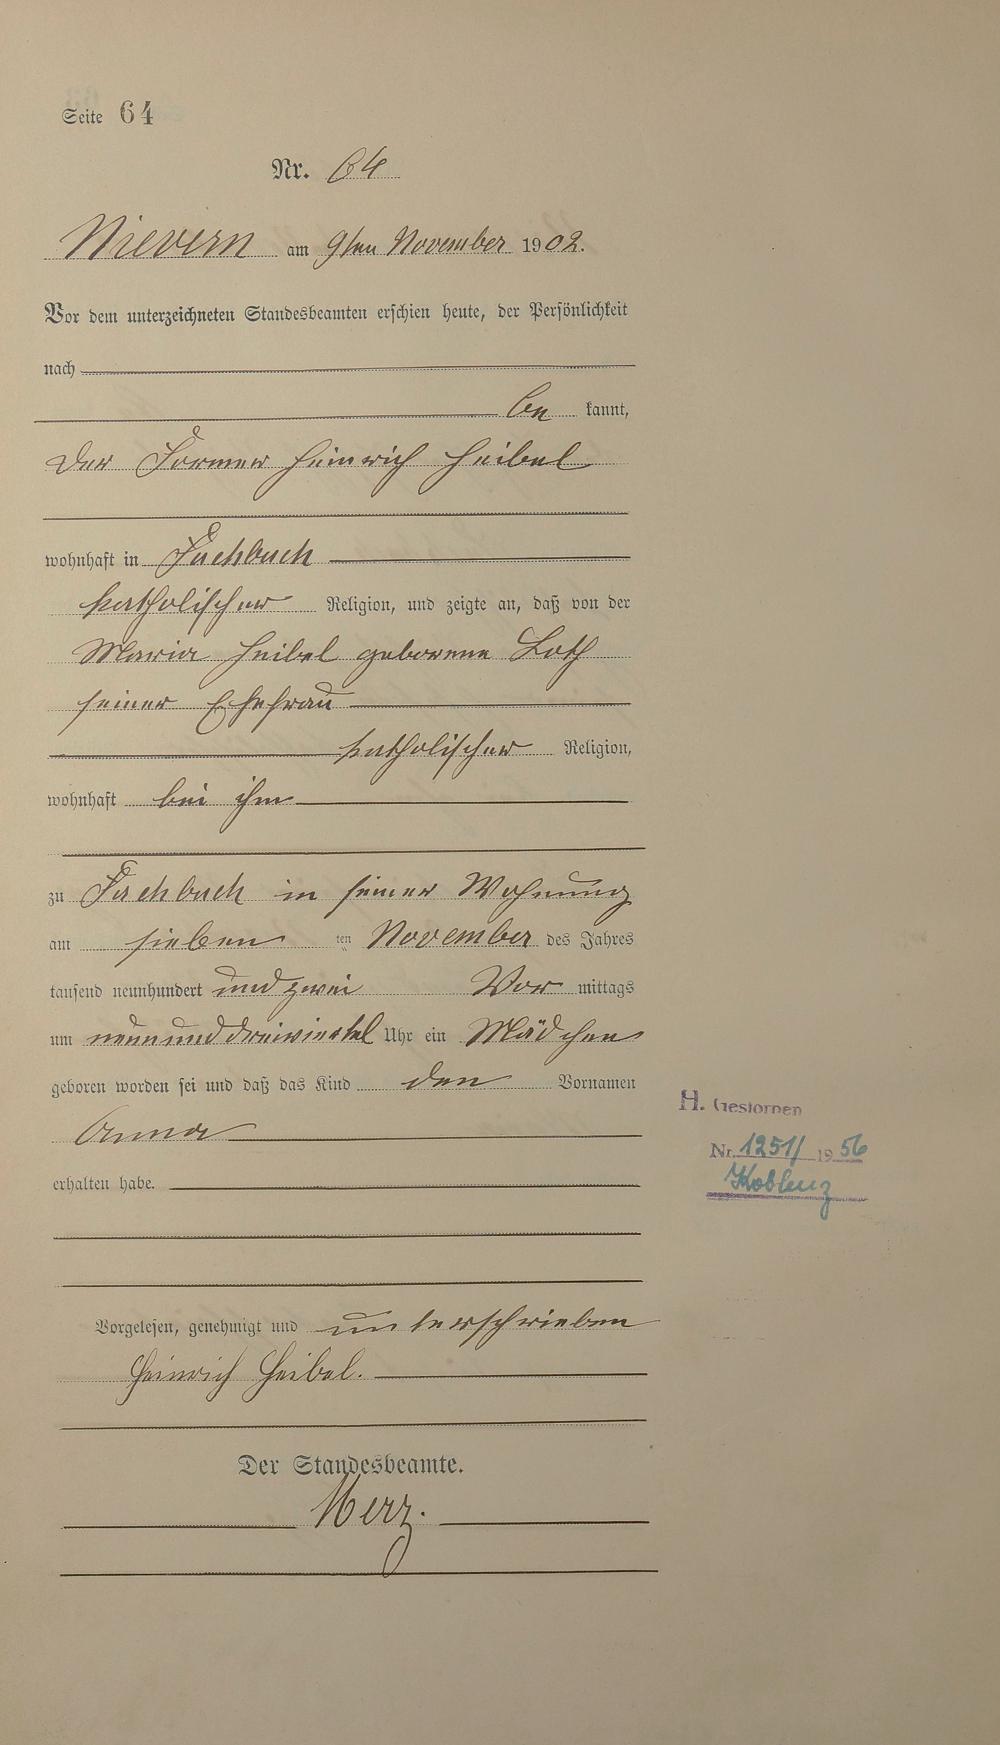 Seite 64
Nr. 64
Nievern am 9ten November 1902.
Vor dem unterzeichneten Standesbeamten erschien heute, der Persönlichkeit
nach
be kannt,
der Former Heinrich Heibel
wohnhaft in Fachbach
katholischer Religion, und zeigte an, daß von der
Maria Heibel geborene Loth
seiner Ehefrau
katholischer Religion,
wohnhaft bei ihm
zu Fachbach in seiner Wohnung
am sieben ten November des Jahres
tausend neunhundert und zwei Vor mittags
um neununddreiviertel Uhr ein Mädchen
geboren worden sei und daß das Kind den Vornamen
Anna
H. Gestorben
Nr. 1251/ 1956
Koblenz
erhalten habe.
Vorgelesen, genehmigt und unterschrieben
Heinrich Heibel.
Der Standesbeamte.
Merz.